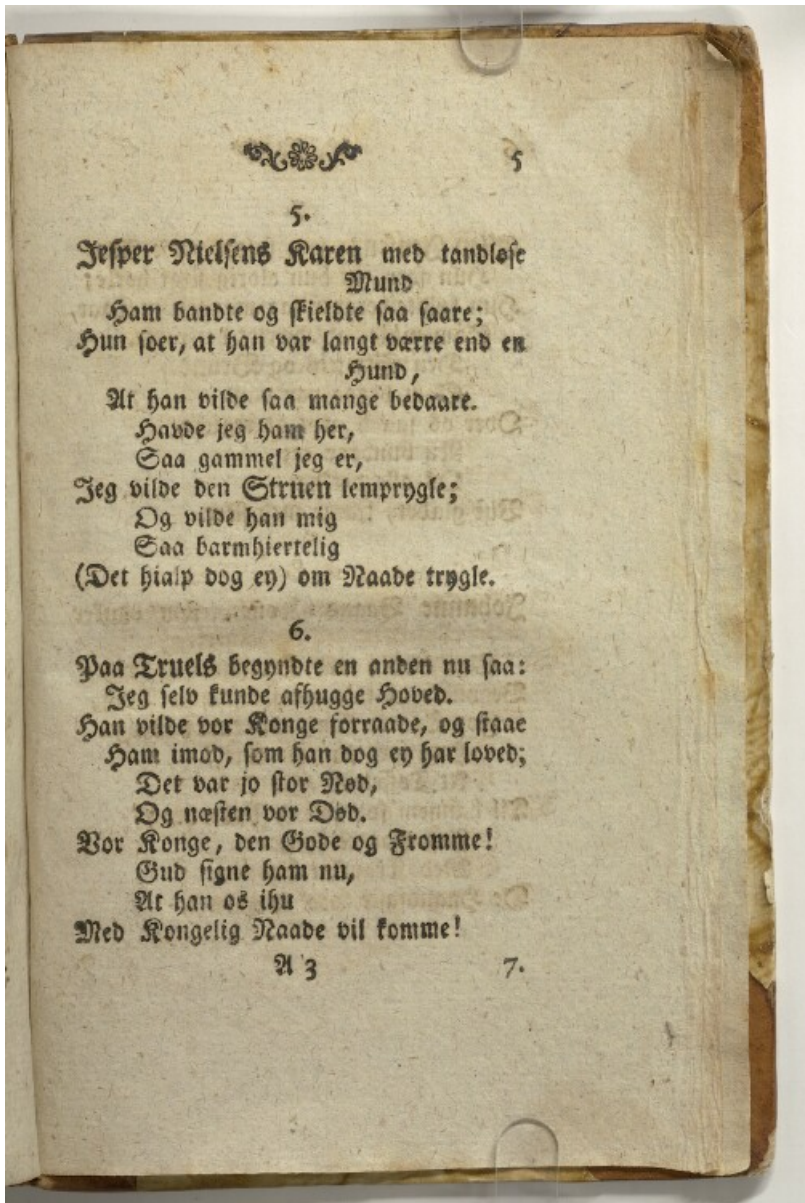 5
5.
Jesper Nielsens Karen med tandløse
Mund
Ham bandte og skieldte saa saare;
Hun soer, at han var langt værre end en
Hund,
At han vilde saa mange bedaare.
Havde jeg ham her,
Saa gammel jeg er,
Jeg vilde den Struen lemprygle;
Og vilde han mig
Saa barmhiertelig
(Det hialp dog ey) om Naade trygle.
6.
Paa Truels begyndte en anden nu saa:
Jeg selv kunde afhugge Hoved.
Han vilde vor Konge forraade, og staae
Ham imod, som han dog ey har loved;
Det var jo stor Nød,
Og næsten vor Død.
Vor Konge, den Gode og Fromme!
Gud signe ham nu,
At han os ihu
Med Kongelig Naade vil komme!
A 3
7.